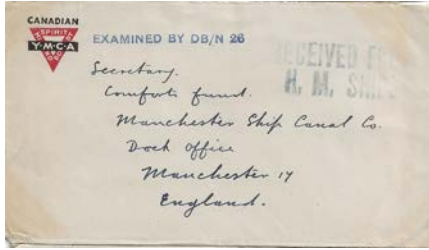 CANADIAN
SPIRIT
Y·M·C·A
EXAMINED BY DB/N 26
RECEIVED FROM
H. M. SHIPS
Secretary.
Comforts fund.
Manchester Ship Canal Co.
Dock Office
Manchester 17
England.